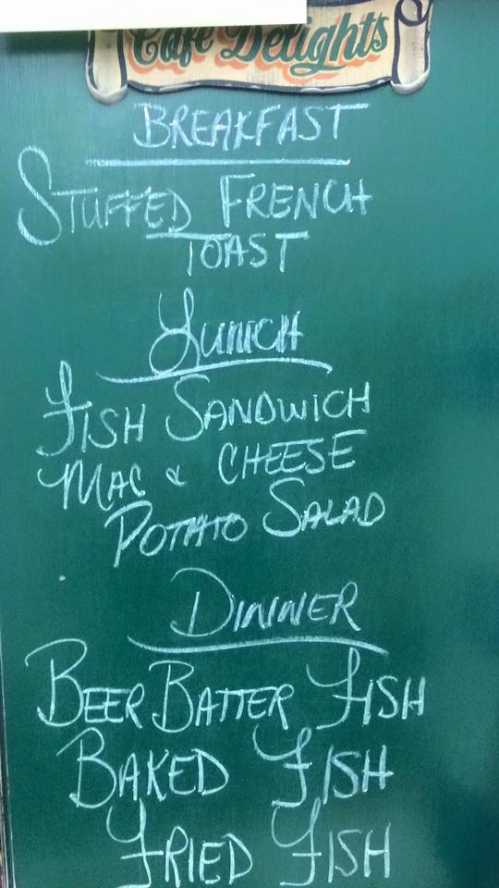 Café Delights
BREAKFAST
STUFFED FRENCH
TOAST
LUNCH
FISH SANDWICH
MAC & CHEESE
POTATO SALAD
DINNER
BEER BATTER FISH
BAKED FISH
FRIED FISH